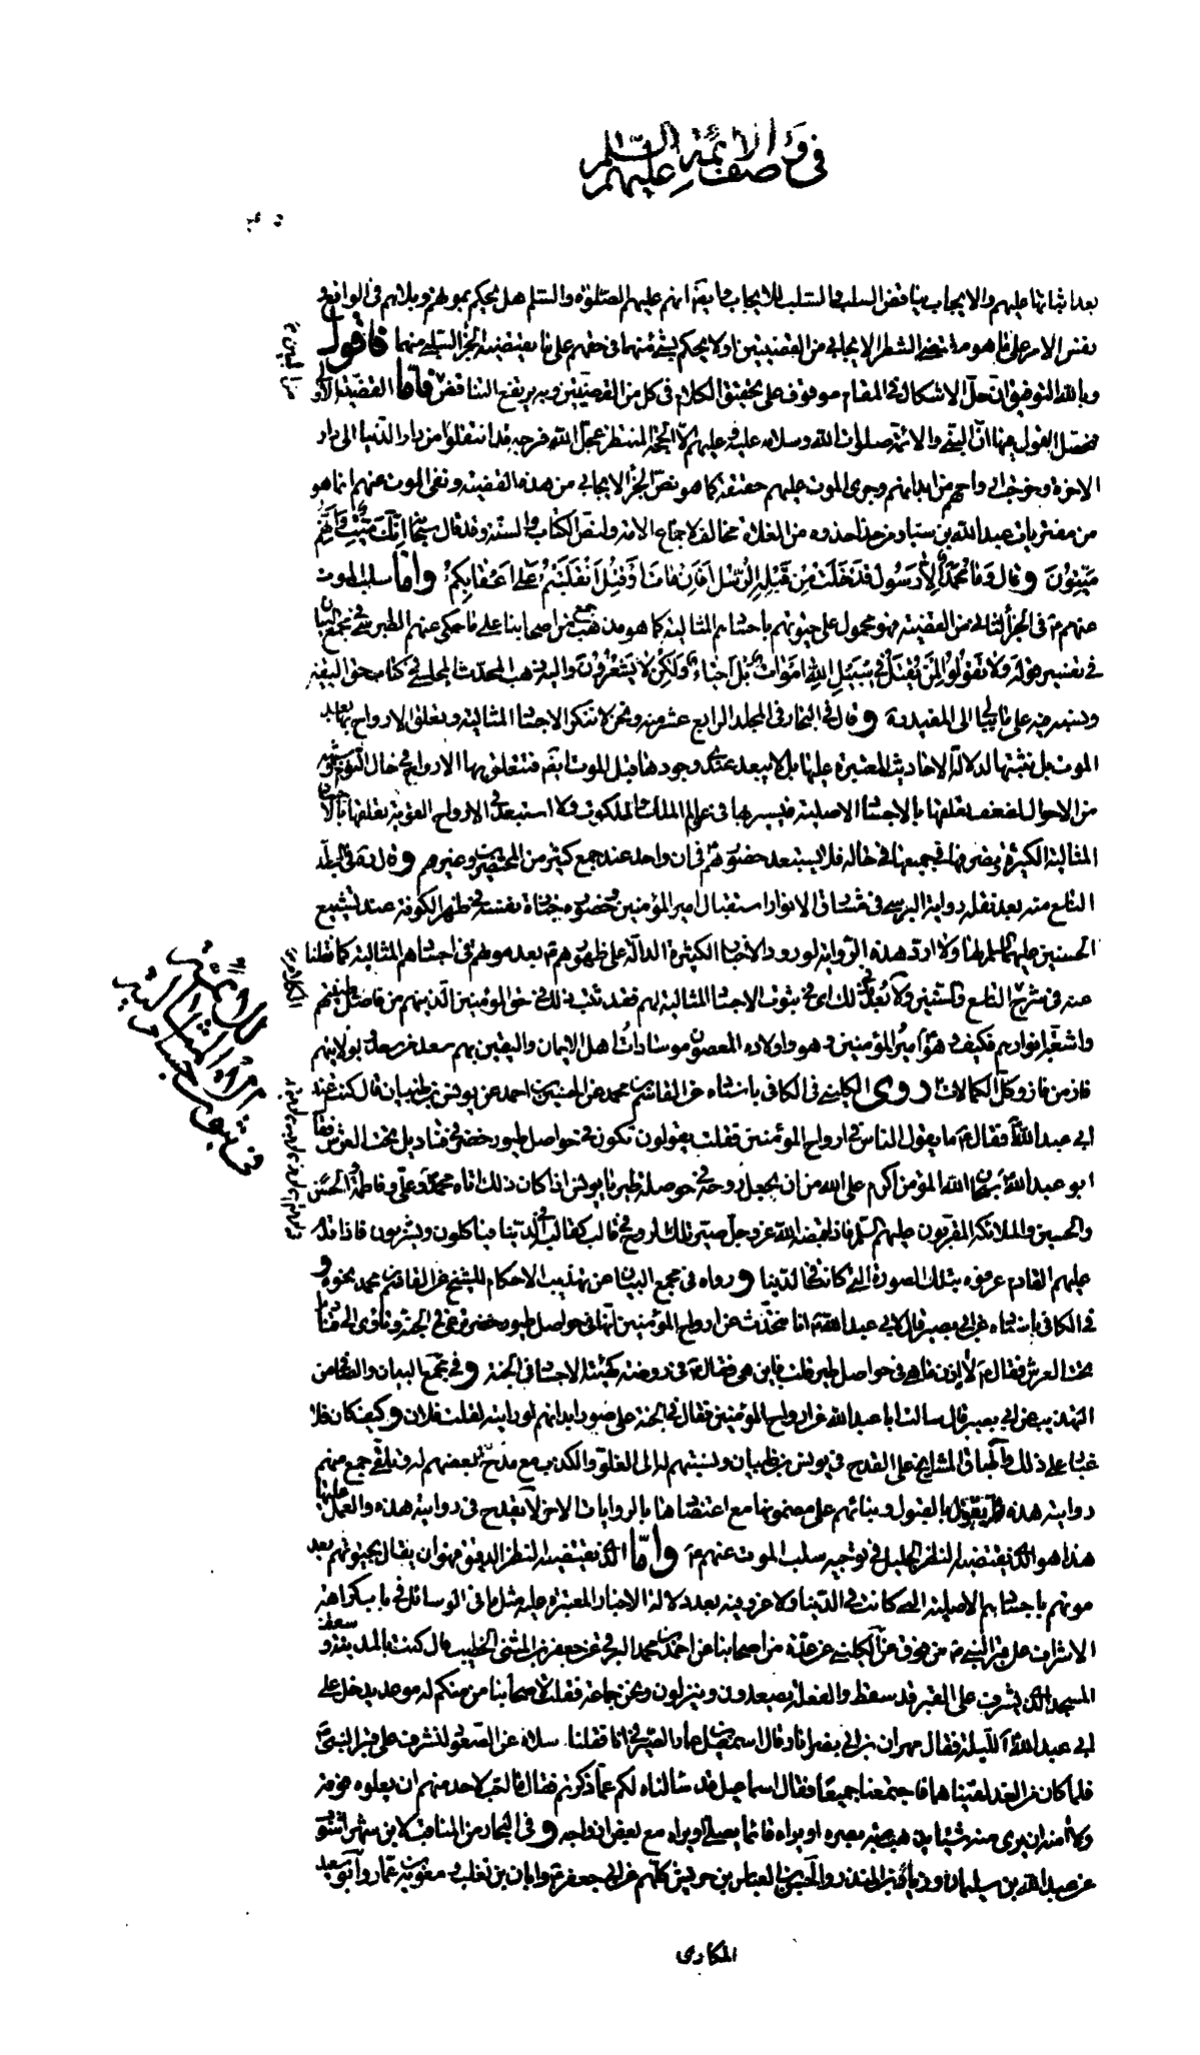 في وصف الأئمة عليهم السلام
بعد اثباتها عليهم والايجاب يناقض السلب والسلب للايجاب وايضا انهم عليهم الصلوة والسلم هل يحكم بموتهم وبلائهم في الواقع و
نفس الامر على ما هو مقتضى الشطر الايجابي من القضيتين اولا يحكم بشئ منهما في حقهم على ما يقتضيه الجزء السلبي منهما فاقول
وبالله التوفيق ان حل الاشكال في المقام موقوف على تحقيق الكلام في كل من القضيتين وبه يرتفع التناقض فاما القضية الاولى
فمحصل القول فيها ان النبي والائمة صلوات الله وسلامه عليه وعليهم الا الحجة المنتظر عجل الله فرجه قد انتقلوا من دار الدنيا الى دار
الاخرة وخرجت ارواحهم من ابدانهم وجرى الموت عليهم حقيقة كما هو نص الجزء الايجابي من هذه القضية ونفى الموت عنهم انما هو
من مفتريات عبد الله بن سبا ومن حذا حذوه من الغلاة مخالف لاجماع الامة ولنص الكتاب والسنة وقد قال سبحانه انك ميت وانهم
ميتون وقال وما محمد الا رسول قد خلت من قبله الرسل افان مات او قتل انقلبتم على اعقابكم واما سلب الموت
عنهم في الجزء الثاني من القضية فهو محمول على حيوتهم باجسامهم المثالية كما هو مذهب جمع من اصحابنا على ما حكى عنهم الطبرسي في مجمع البيان
في تفسير قوله ولا تقولوا لمن يقتل في سبيل الله اموات بل احياء ولكن لا يشعرون واليه ذهب المحدث المجلسي في كتاب حق اليقين
ونسبه فيه على ما ببالي الى المفيد وقال في البحار في المجلد الرابع عشر منه ونحن لا ننكر الاجساد المثالية وتعلق الارواح بها بعد
الموت بل نثبتها لدلالة الاحاديث المعتبرة عليها بل لا يبعد عندي وجودها قبل الموت ايضا فتتعلق بها الارواح في حال النوم وشبهه
من الاحوال لضعف تعلقها بالاجساد الاصلية فيسير بها في عوالم الملك والملكوت ولا استبعد في الارواح القوية تعلقها بالاجساد
المثالية الكثيرة وتصرفها في جميعها في حالة فلا يستبعد حضورهم في ان واحد عند جمع كثير من المحتضرين وغيرهم وقال في المجلد
التاسع منه بعد نقله رواية البرسي في مشارق الانوار استقبال امير المؤمنين بحضوره جنازة نفسه في ظهر الكوفة عند تشييع
الحسنين عليهما السلام لها ولا ارد هذه الرواية لورود الاخبار الكثيرة الدالة على ظهورهم بعد موتهم في اجسادهم المثالية كما نقلنا
عنه في شرح التاسع والستين ولا بعد في ذلك اى في ثبوت الاجساد المثالية لهم فقد ثبت ذلك في حق المؤمنين الذينهم من فاضل طينتهم
واشعة انوارهم فكيف وهو امير المؤمنين وهو واولاده المعصومون سادات اهل الايمان واليقين بهم سعد من سعد وبولايتهم
فاز من فاز وكل الكمالات روى الكليني في الكافي باسناده عن القاسم بن محمد عن الحسين بن احمد عن يونس بن ظبيان قال كنت عند
ابي عبد الله فقال ما يقول الناس في ارواح المؤمنين فقلت يقولون تكون في حواصل طيور خضر في قناديل تحت العرش فقال
ابو عبد الله سبحان الله المؤمن اكرم على الله من ان يجعل روحه في حوصلة طير يا يونس اذا كان ذلك اتاه محمد وعلي وفاطمة والحسن
والحسين والملائكة المقربون عليهم السلم فاذا قبضه الله عز وجل صير تلك الروح في قالب كقالبه في الدنيا فيأكلون ويشربون فاذا قدم
عليهم القادم عرفوه بتلك الصورة التي كانت في الدنيا ورواه في مجمع البيان عن تهذيب الاحكام للشيخ عن القاسم بن محمد نحوه و
في الكافي باسناده عن ابي بصير قال لابي عبد الله انا نتحدث عن ارواح المؤمنين انها في حواصل طيور خضر ترعى في الجنة وتاوى الى قناديل
تحت العرش فقال لا اذن ما هي في حواصل طير قلت فاين هي فقال في روضة كهيئة الاجساد في الجنة وفي مجمع البيان والصافي من
التهذيب عن ابي بصير قال سالت ابا عبد الله عن ارواح المؤمنين فقال في الجنة على صور ابدانهم لو رايته لقلت فلان وكيف كان فلا
غبار على ذلك واطباق المشايخ على القدح في يونس بن ظبيان ونسبتهم له الى الغلو والكذب مع مدح بعضهم له وتلقى جمع منهم
روايته هذه بالقبول وبنائهم على مضمونها مع اعتضادها بالروايات الاخر لا يقدح في روايته هذه والعمل عليها
هذا هو الذي يقتضيه النظر الجليل في توجيه سلب الموت عنهم واما الذي يقتضيه النظر الدقيق فهو ان يقال بحيوتهم بعد
موتهم باجسادهم الاصلية التي كانت في الدنيا ولا غرو فيه بعد دلالة الاخبار المعتبرة عليه مثل ما في الوسائل في باب كراهة
الاشراف على قبر النبي من فوق عن الكليني عن عدة من اصحابنا عن احمد بن محمد البرقي عن جعفر بن المثنى الخطيب قال كنت بالمدينة وسقف
المسجد الذي يشرف على القبر قد سقط والفعلة يصعدون وينزلون ونحن جماعة فقلت لاصحابنا من منكم له موعد يدخل على
ابي عبد الله الليلة فقال مهران بن ابي نصر انا وقال اسمعيل بن عمار الصيرفي انا فقلنا سلاه عن الصعود لنشرف على قبر النبي
فلما كان من الغد لقيناهما فاجتمعنا جميعا فقال اسماعيل قد سالناه لكم عما ذكرتم فقال ما احب لاحد منهم ان يعلوه فوقه
ولا امنه ان يرى منه شيئا يذهب منه بصره او يراه قائما يصلي او يراه مع بعض ازواجه وفي البحار من المناقب لابن شهر اشوب
عن عبد الله بن سليمان وزياد بن المنذر والحسن بن العباس بن حريش كلهم عن ابي جعفر وابان بن تغلب ومعوية بن عمار وابو سعيد
المكارى